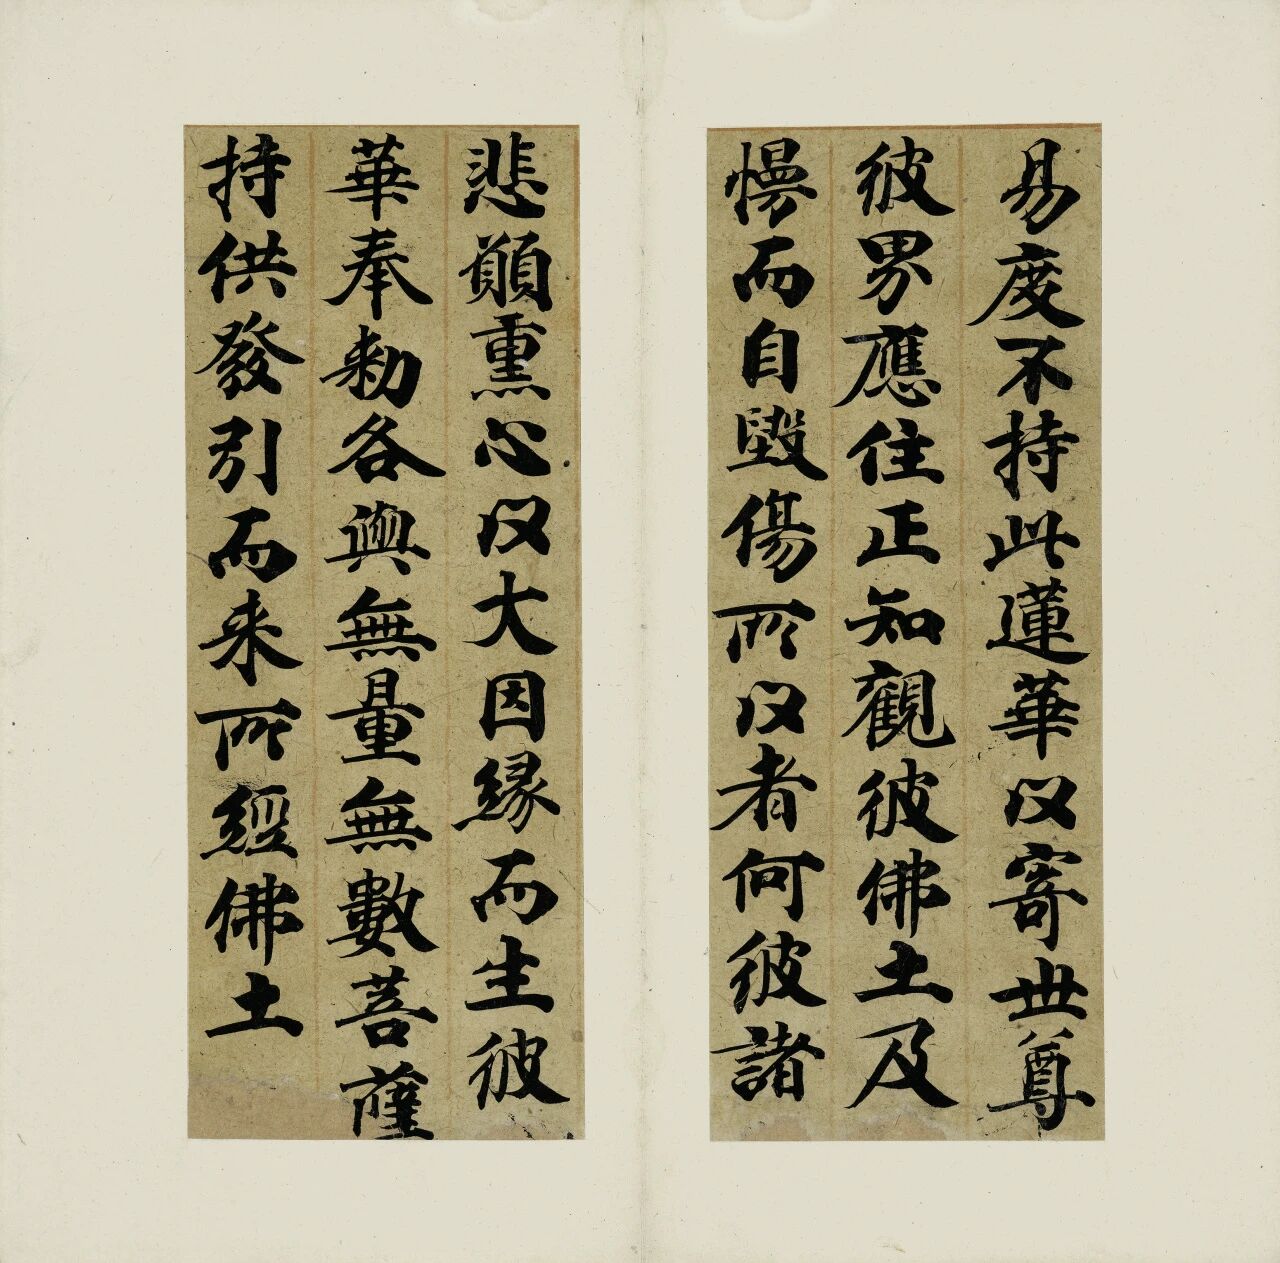 易度不持此蓮華以寄世尊
彼界應住正知觀彼佛土及
慢而自毀傷所以者何彼諸
悲願熏心以大因緣而生彼
華奉勅各與無量無數菩薩
持供發引而来所經佛土